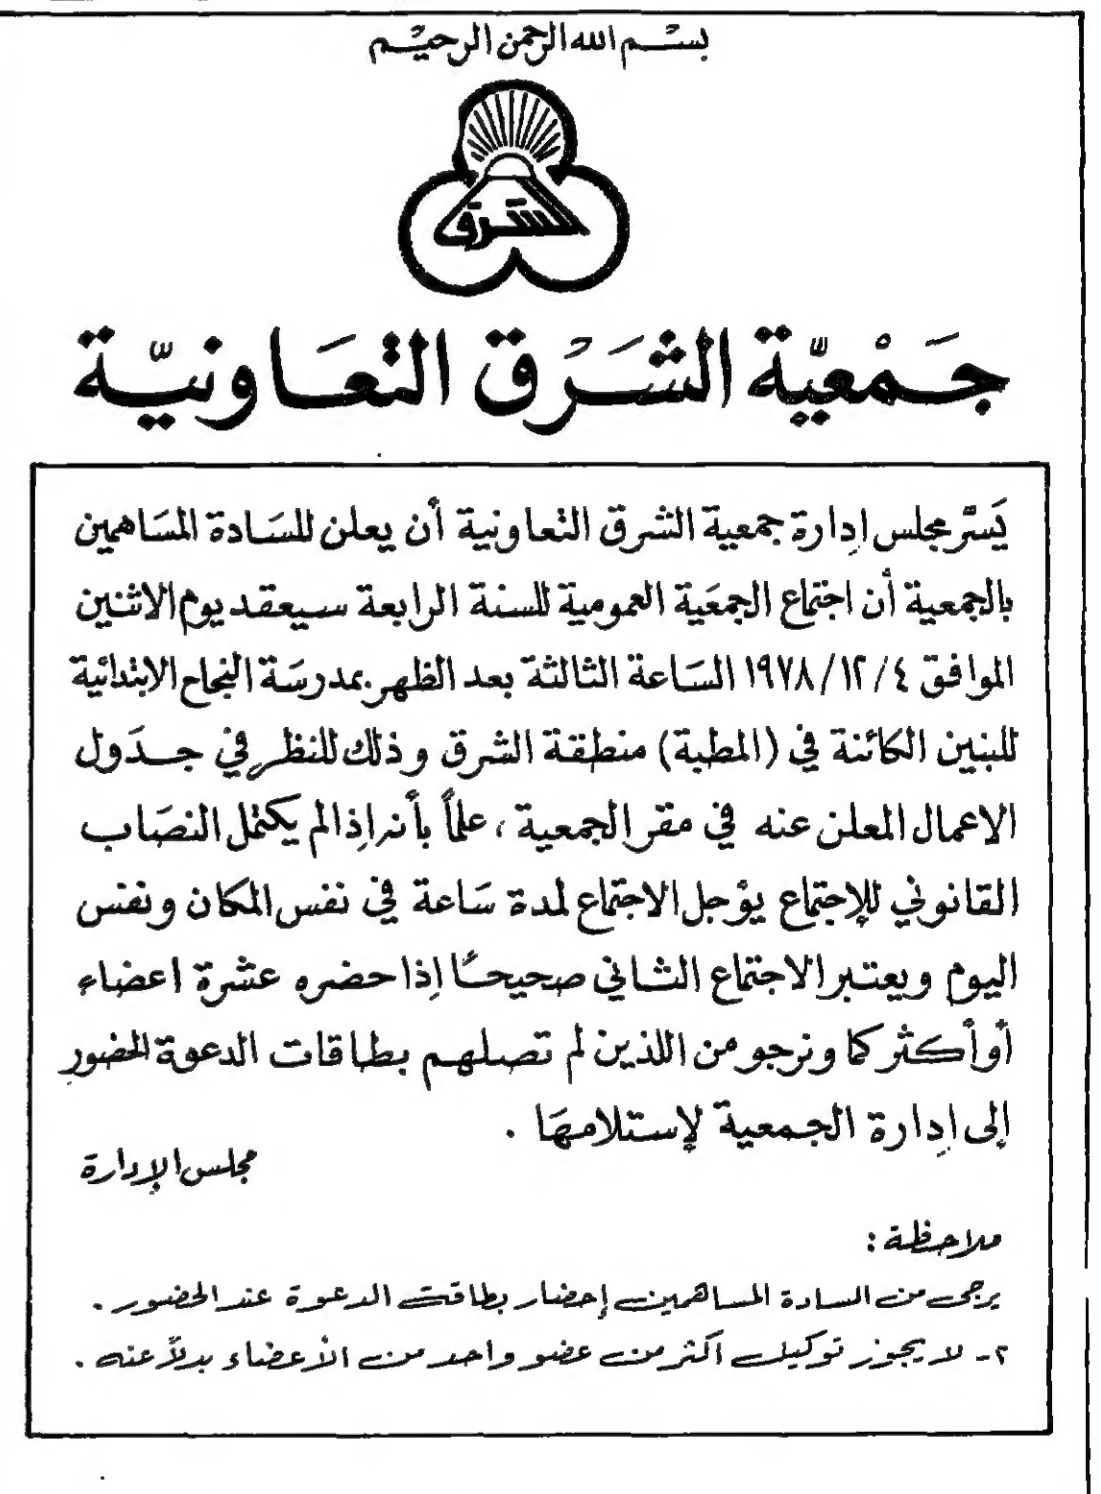 بسم الله الرحمن الرحيم
الشرق
جَمْعيّة الشَرْق التعَاونيّة
يَسّر مجلس إدارة جمعية الشرق التعاونية أن يعلن للسَادة المسَاهمين
بالجمعية أن اجتماع الجمعَية العمومية للسنة الرابعة سيعقد يوم الاثنين
الموافق ٤/ ١٢/ ١٩٧٨ السَاعة الثالثة بعد الظهر بمدرسَة النجاح الابتدائية
للبنين الكائنة في (المطبة) منطقة الشرق وذلك للنظر في جدَول
الاعمال المعلن عنه في مقر الجمعية ، علماً بأنه إذا لم يكتمل النصَاب
القانوني للإجتماع يؤجل الاجتماع لمدة سَاعة في نفس المكان ونفس
اليوم ويعتبر الاجتماع الثاني صحيحاً إذا حضره عشرة اعضاء
أو أكثر كما ونرجو من اللذين لم تصلهم بطاقات الدعوة الحضور
إلى إدارة الجمعية لإستلامهَا .
مجلس الإدارة
ملاحظة :
يرجى من السادة المساهمين إحضار بطاقة الدعوة عند الحضور .
٢- لا يجوز توكيل أكثر من عضو واحد من الأعضاء بدلاً عنه .